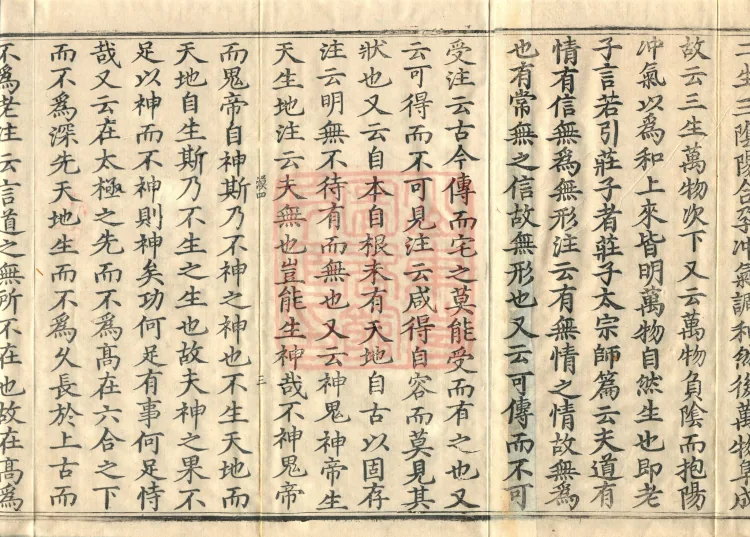 二生三陰陽合孕冲氣調和然後萬物阜成
故云三生萬物次下又云萬物負陰而抱陽
冲氣以爲和上來皆明萬物自然生也即老
子言若引莊子者莊子太宗師篇云夫道有
情有信無爲無形注云有無情之情故無爲
也有常無之信故無形也又云可傳而不可
受注云古今傳而宅之莫能受而有之也又
云可得而不可見注云咸得自容而莫見其
狀也又云自本自根未有天地自古以固存
注云明無不待有而無也又云神鬼神帝生
天生地注云夫無也豈能生神哉不神鬼帝
漠四 三
而鬼帝自神斯乃不神之神也不生天地而
天地自生斯乃不生之生也故夫神之果不
足以神而不神則神矣功何足有事何足恃
哉又云在太極之先而不爲高在六合之下
而不爲深先天地生而不爲久長於上古而
不爲老注云言道之無所不在也故在高爲